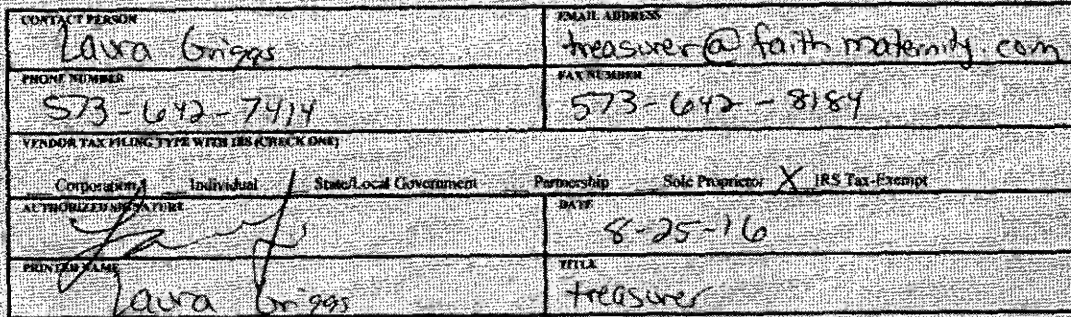 CONTACT PERSON EMAIL ADDRESS
Laura Griggs treasurer@faithmaternity.com
PHONE NUMBER FAX NUMBER
573-642-7414 573-642-8184
VENDOR TAX FILING TYPE WITH IRS (CHECK ONE)
Corporation Individual State/Local Government Partnership Sole Proprietor X IRS Tax-Exempt
AUTHORIZED SIGNATURE DATE
8-25-16
PRINTED NAME TITLE
Laura Griggs treasurer